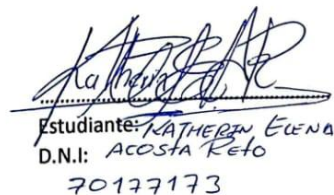 Estudiante: KATHERIN ELENA
D.N.I: ACOSTA RETO
70177173